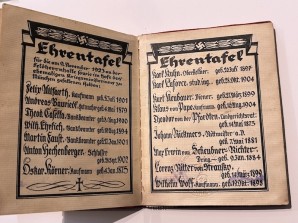 Ehrentafel
für die am 9. November 1923 vor der
Feldherrnhalle sowie im Hofe des
ehemaligen Kriegsministeriums zu
München gefallenen Helden:
Felix Allfarth, Kaufmann
geb. 5. Juli 1901
Andreas Bauriedl,
geb. 4. Mai 1879
Theod. Casella, Bankbeamter
geb. 8. Aug. 1900
Wilh. Ehrlich, Bankbeamter
geb.
Martin Faust, Bankbeamter
geb. 27.
Anton Hechenberger, Schlosser
geb. 1902
Oskar Körner, Kaufmann
geb. 4. Jan. 1875
Ehrentafel
Karl Kuhn, Oberkellner, geb. 26. Juli 1897
Karl Laforce, stud. ing.,
geb. 28. Okt. 1904
Kurt Neubauer, Diener,
geb. 27.
Klaus von Pape, Kaufmann,
geb. 16. Aug. 1904
Theodor von der Pfordten,
geb. 14. Mai 1873
Johann Rickmers, Rittmeister a. D.
geb. 7. Mai 1881
Max Erwin von Scheubner-Richter,
Dr. ing., geb. 9. Jan. 1884
Lorenz Ritter von Stransky,
geb. 14. März 1899
Wilhelm Wolf, Kaufmann,
geb. 1898